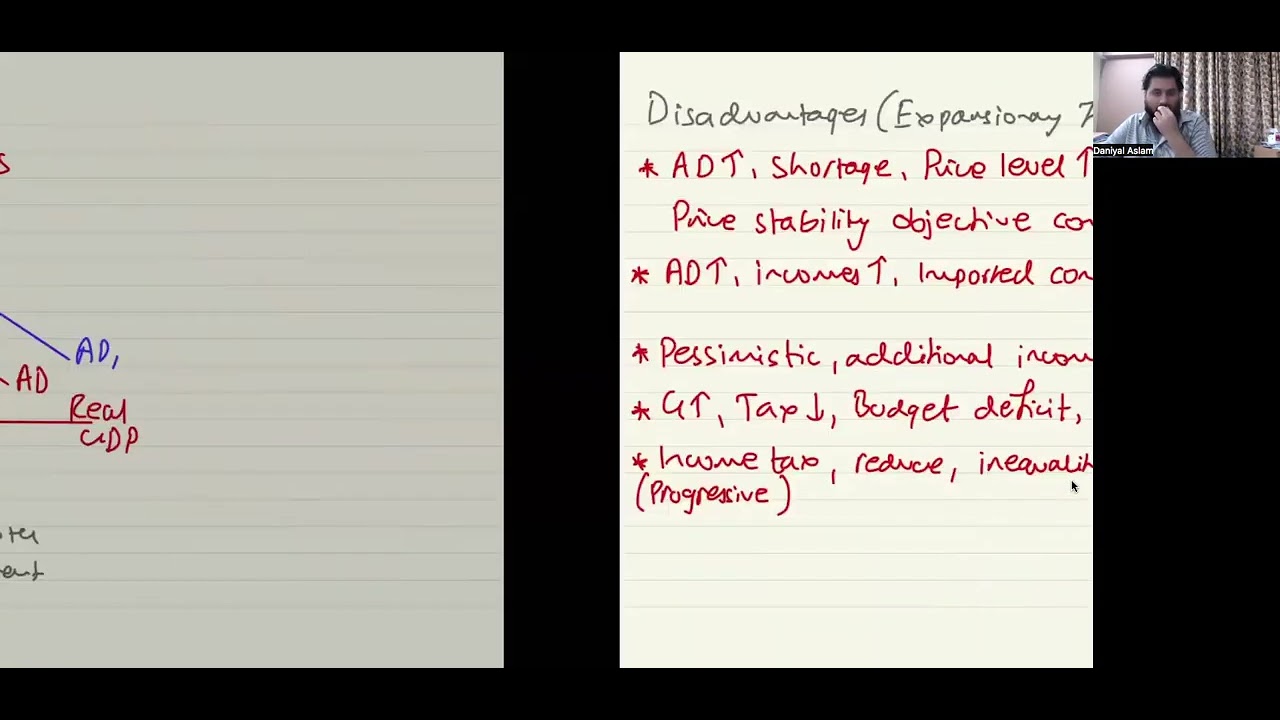 s
AD,
AD
Real
GDP
ent
Disadvantages (Expansionary
* AD↑, Shortage, Price level ↑
Price stability objective con
* AD↑, incomes↑, Imported con
* Pessimistic, additional incom
* G↑, Tax↓, Budget deficit,
* Income tax, reduce, inequalit
(Progressive)
Daniyal Aslam